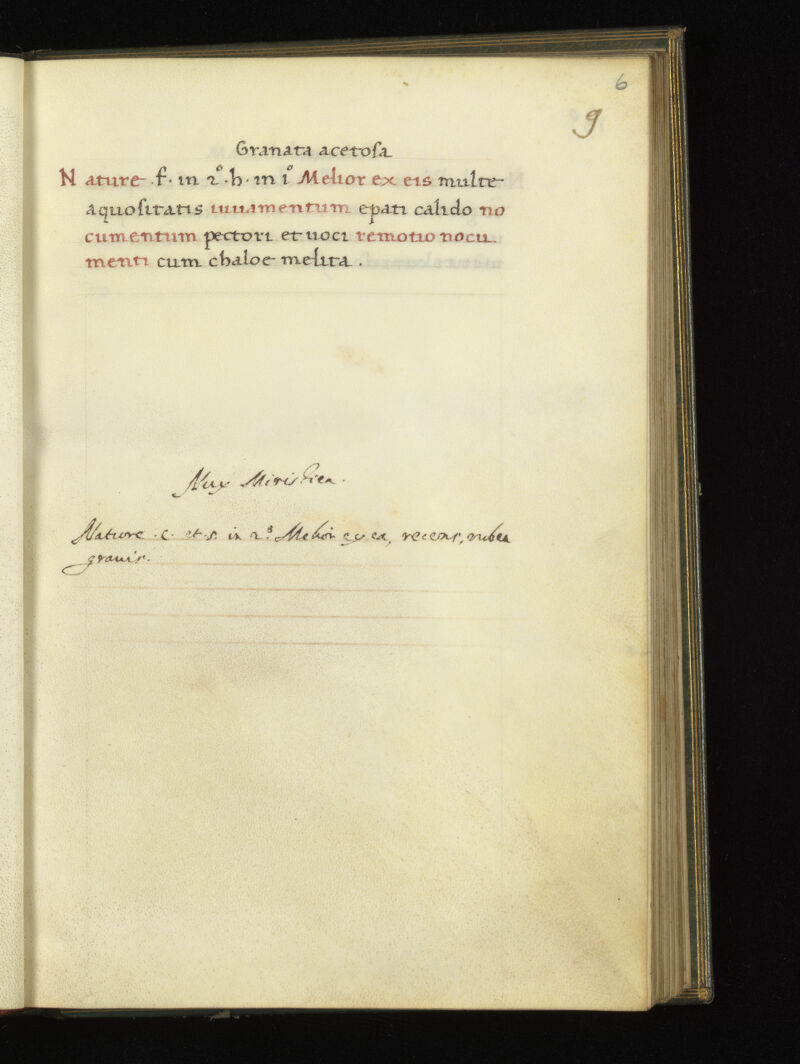 6
9
Granata acetosa
Nature .f. in 2° .h. in i° Melior ex eis multe
aquositatis iuuamentum epati calido no
cumentum pectori et uoci remotio nocu
menti cum chaloe melita .
Nux Miristica.
Nature .c. et .s. in 2.° Melior ex ea, recens, rubea
grauis.